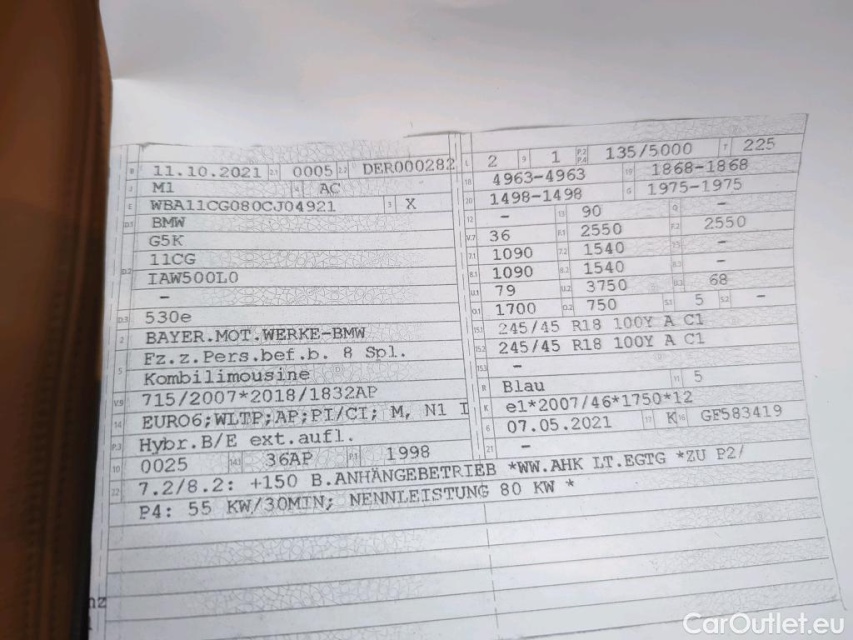 B 11.10.2021 2.1 0005 2.2 DER000282
J M1 4 AC
E WBA11CG080CJ04921 3 X
D.1 BMW
G5K
D.2 11CG
IAW500L0
–
D.3 530e
2 BAYER.MOT.WERKE-BMW
5 Fz.z.Pers.bef.b. 8 Spl.
Kombilimousine
V.9 715/2007*2018/1832AP
14 EURO6;WLTP;AP;PI/CI; M, N1 I
P.3 Hybr.B/E ext.aufl.
10 0025 14.1 36AP P.1 1998
L 2 9 1 P.2 P.4 135/5000 T 225
18 4963-4963 19 1868-1868
20 1498-1498 G 1975-1975
12 – 13 90 Q –
V.7 36 F.1 2550 F.2 2550
7.1 1090 7.2 1540 7.3 –
8.1 1090 8.2 1540 8.3 –
U.1 79 U.2 3750 U.3 68
O.1 1700 O.2 750 S.1 5 S.2 –
15.1 245/45 R18 100Y A C1
15.2 245/45 R18 100Y A C1
15.3 –
R Blau 11 5
K e1*2007/46*1750*12
6 07.05.2021 17 K 16 GF583419
21 –
22 7.2/8.2: +150 B.ANHÄNGEBETRIEB *WW.AHK LT.EGTG *ZU P2/
P4: 55 KW/30MIN; NENNLEISTUNG 80 KW *
nz
CarOutlet.eu